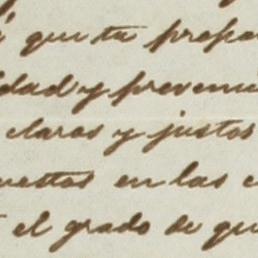 que tu propa
dad y preveni
claros y justos
uestos en las c
el grado de qu